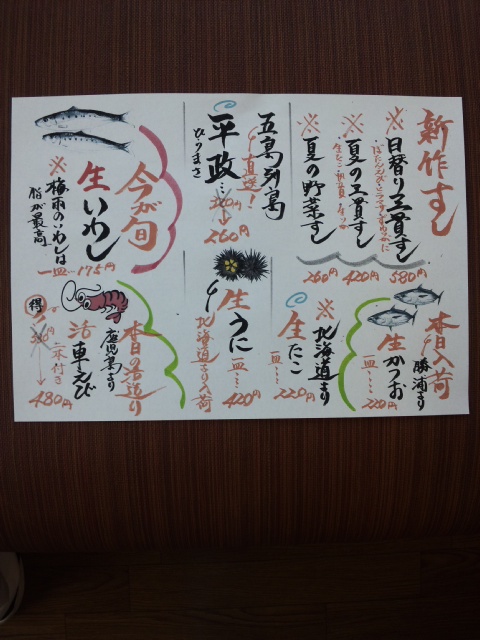 新作すし
※日替り三貫すし
580円
※夏の三貫すし
420円
※夏の野菜すし
260円
五島列島
直送!
平政…
ひらまさ
260円
今が旬
生いわし
※梅雨のいわしは
脂が最高
一皿…175円
本日入荷
勝浦より
生かつお
一皿…220円
※北海道より
生たこ
一皿…220円
生うに
一皿…420円
北海道より入荷
本日の活造り
鹿児島より
活車えび
二本付き
得
480円